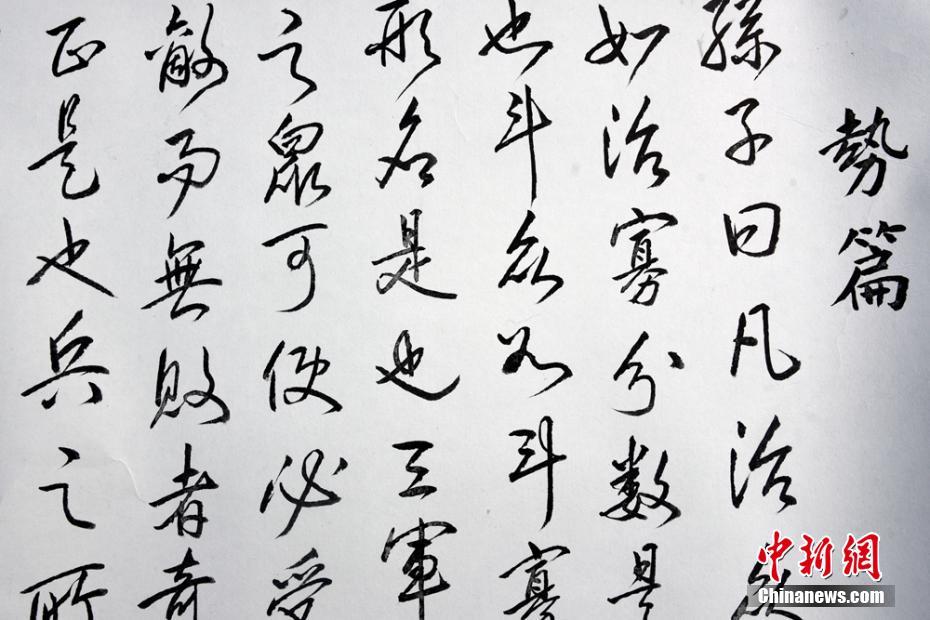 勢篇
孫子曰凡治衆
如治寡分数是
也斗众如斗寡
形名是也三軍
之眾可使必受
敵而無敗者奇
正是也兵之所
中新網
Chinanews.com